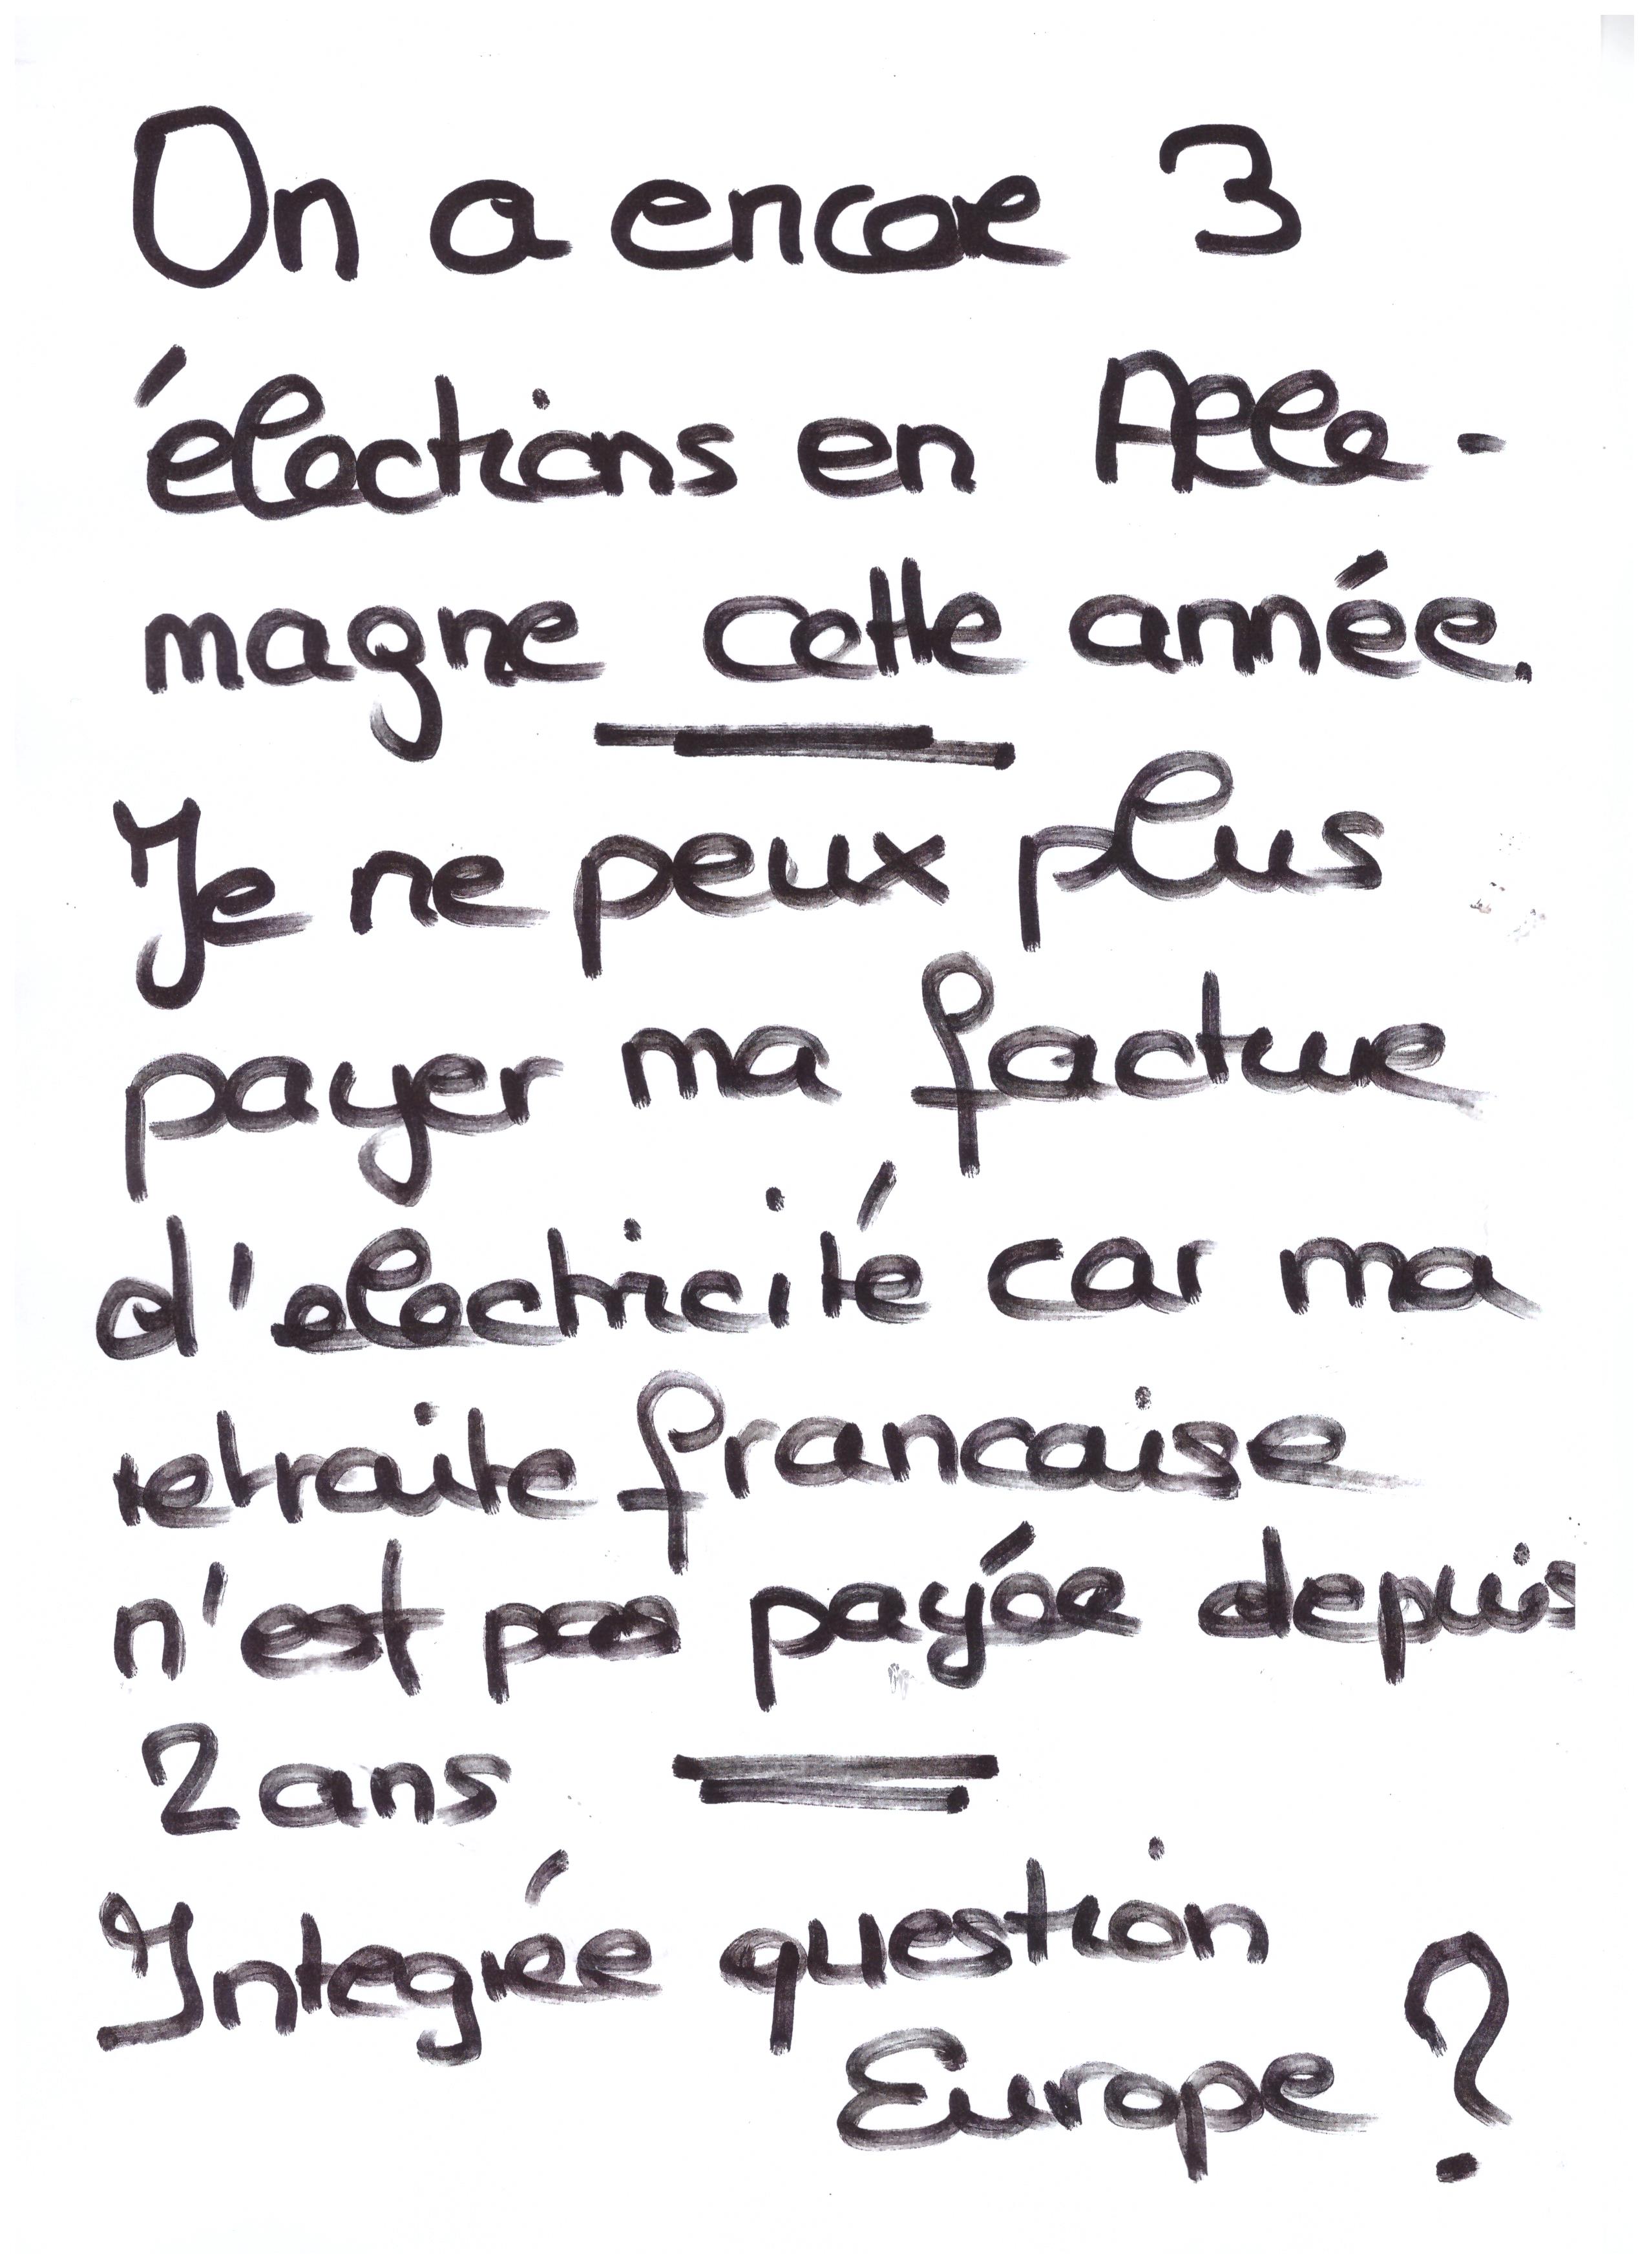 On a encore 3
élections en Alle-
magne cette année.
Je ne peux plus
payer ma facture
d'electricité car ma
retraite francaise
n'est pas payée depuis
2 ans
Integrée question
Europe ?